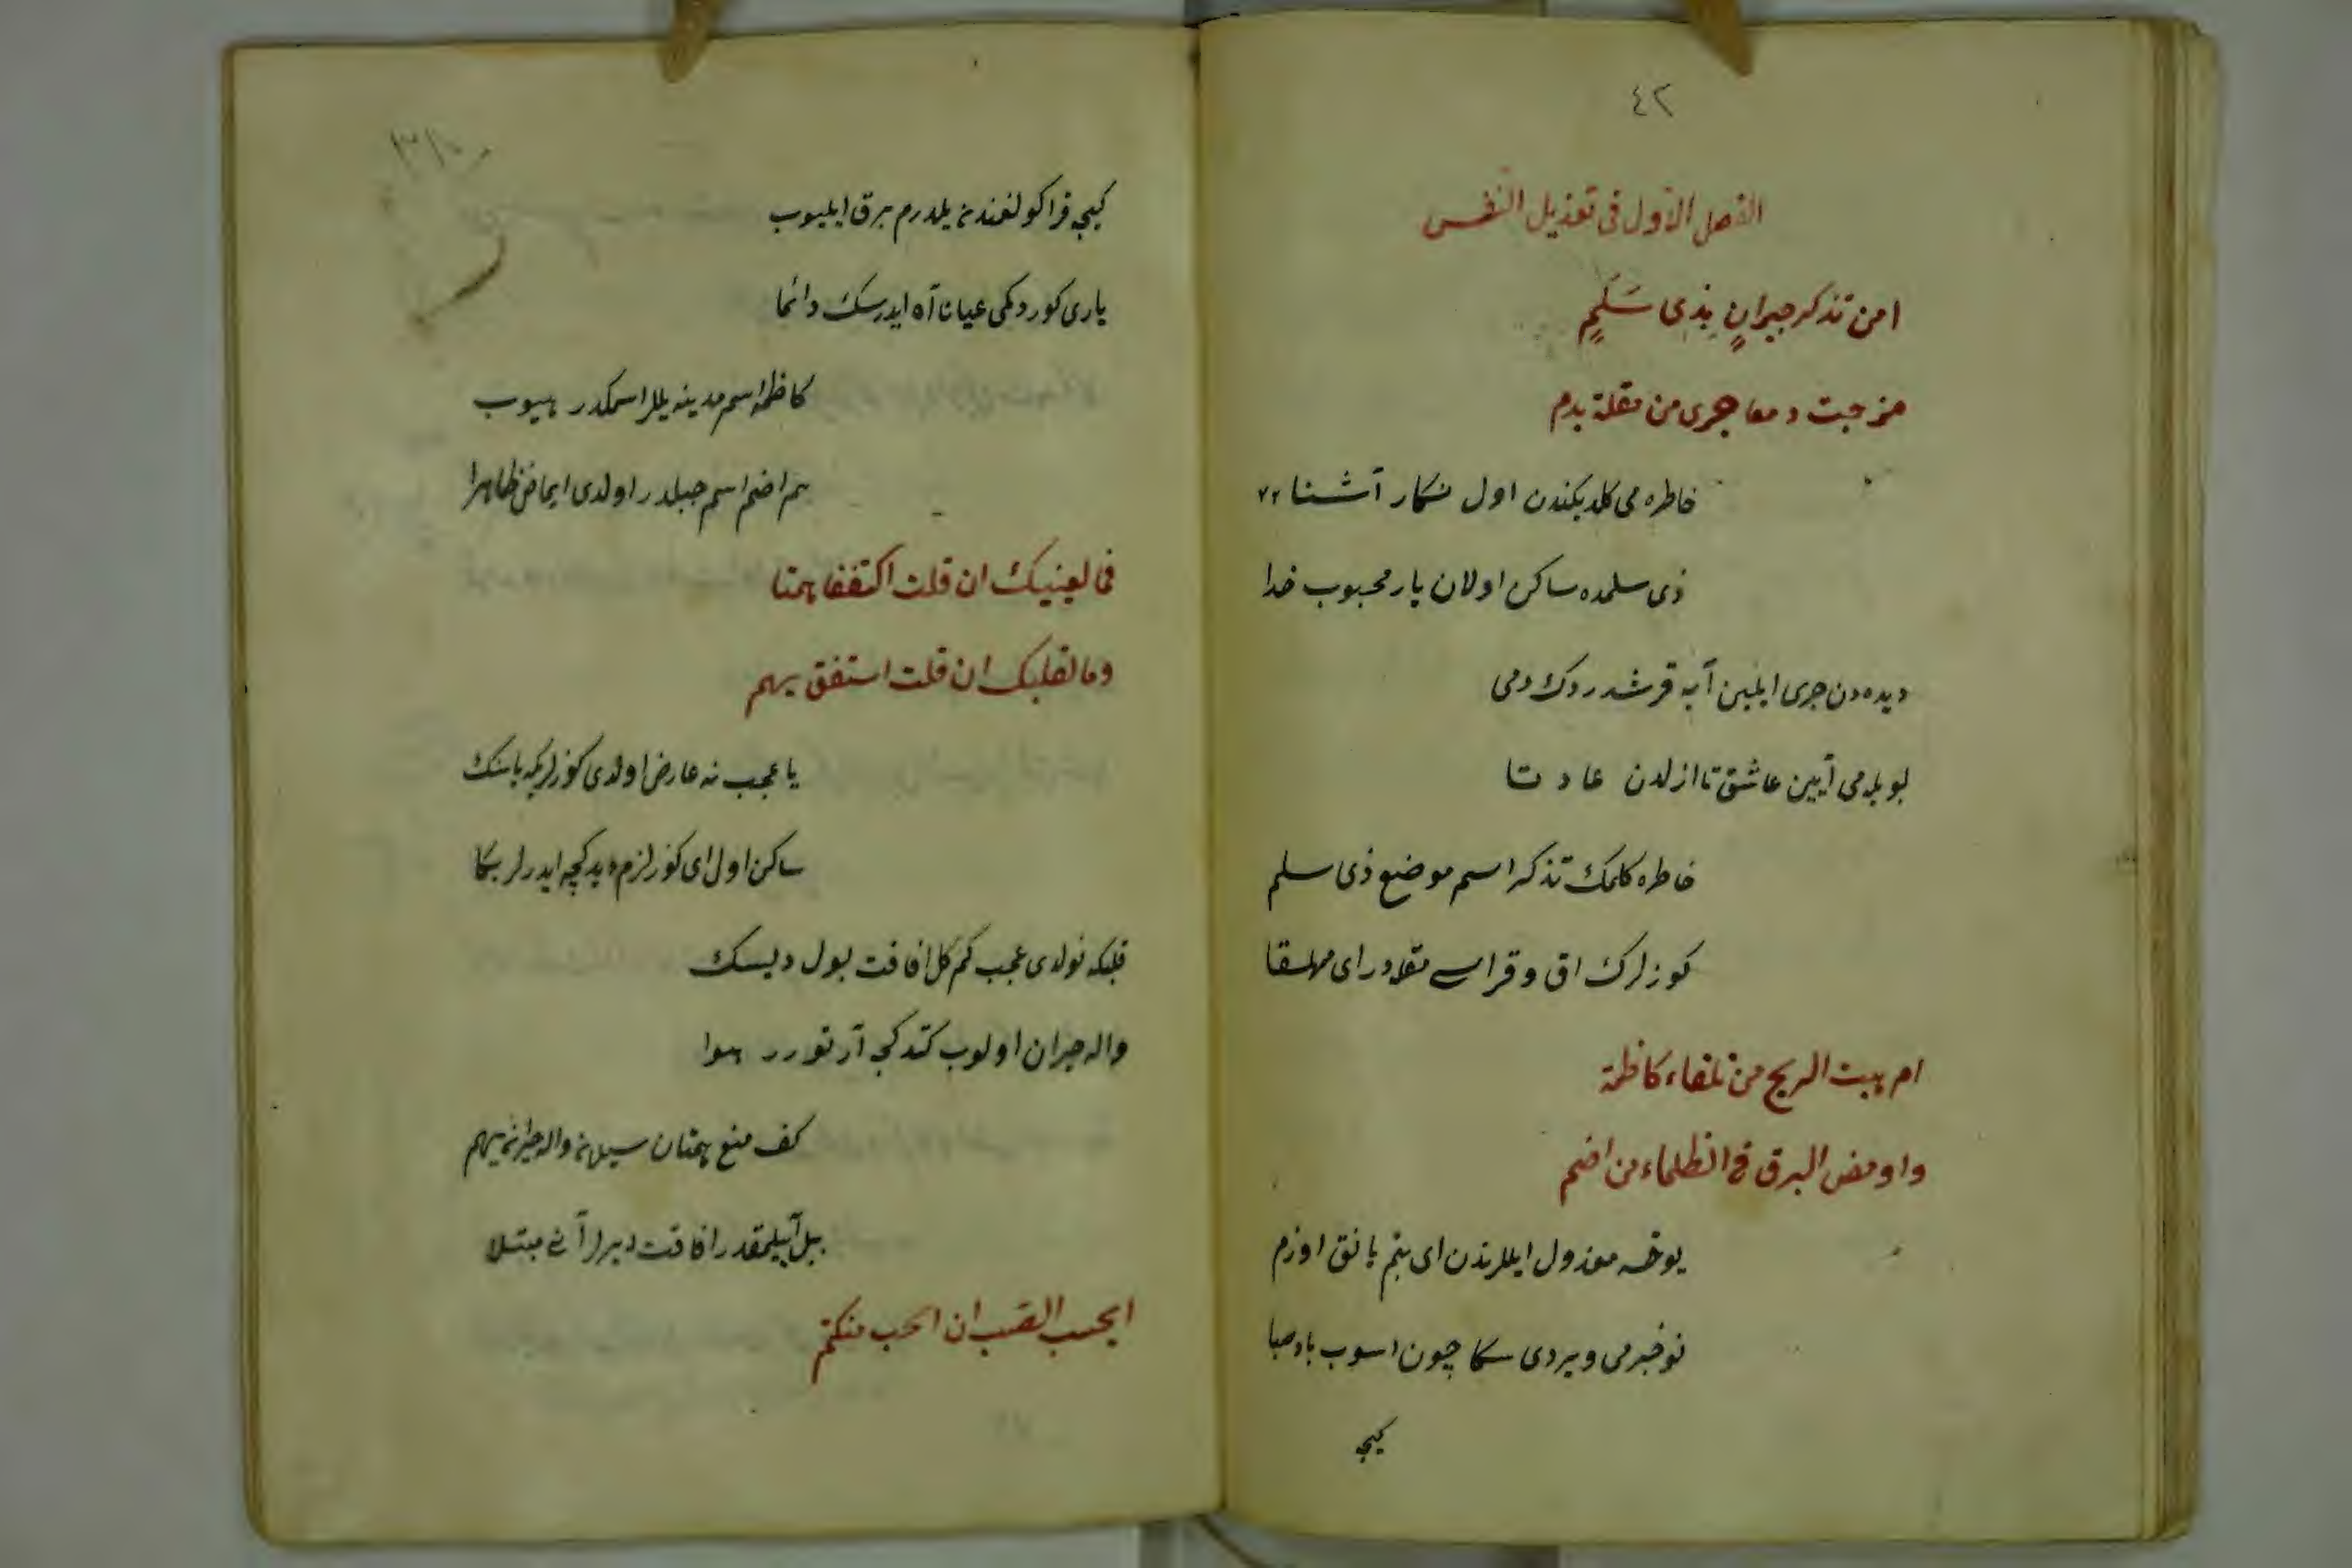 ٤٢
الفصل الاول فى تعذيل النفس
امن تذكر جيرانٍ بذى سَلَمٍ
مزجت دمعا جرى من مقلة بدم
خاطره مى كلديكندن اول نكار آشنا
ذى سلمده ساكن اولان يار محبوب خدا
ديده دن جرى ايلين آبه قرشدردك دمى
بويله مى آيين عاشق تا ازلدن عادتا
خاطره كلمك تذكر اسم موضع ذى سلم
كوزلرك اق و قراسى مقله در اى مهلقا
ام هبت الريح من تلقاء كاظمة
واومض البرق فى الظلماء من اضم
يوخسه معذول ايللرندن اى بنم يانق اوزم
نو خبرمى ويردى سكا چون اسوب باد صبا
كيجه
كيجه قراكولغنده يلدرم برق ايليوب
يارى كوردكمى عيانا آه ايدرسك دائما
كاظمه اسم مدينه يللر اسمكدر هبوب
هم اضم اسم جبلدر اولدى ايماض ظاهرا
فما لعينيك ان قلت اكففا همتا
وما لقلبك ان قلت استفق يهم
يا عجب نه عارض اولدى كوزلريكه باسنك
ساكن اول اى كوزلرم ديدكجه ايدرلر بكا
قلبكه نولدى عجب كم كل افاقت بول ديسك
واله حيران اولوب كتدكجه آرتورر هوا
كف منع همتان سيلانه واله حيرانه يهم
بيل آييلمقدر افاقت ديرلر آنى مبتلا
ايحسب الصب ان الحب منكتم